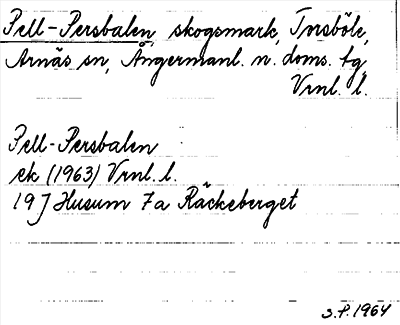 Pell-Persbalen, skogsmark, Torsböle,
Arnäs sn, Ångermanl. n. doms. tg
Vrnl. l.
Pell-Persbalen
ek (1963) Vrnl. l.
19 J Husum 7a Räckeberget
S.P. 1964